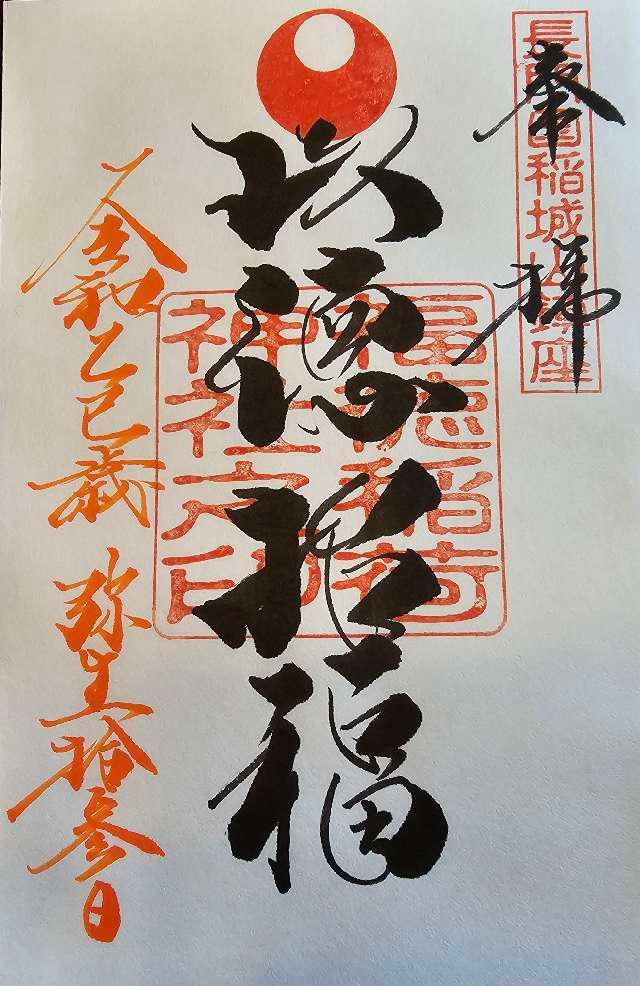 奉拝
長門国稲城山鎮座
以徳招福
富徳稲荷
神社之印
令和乙巳歳 弥生拾参日